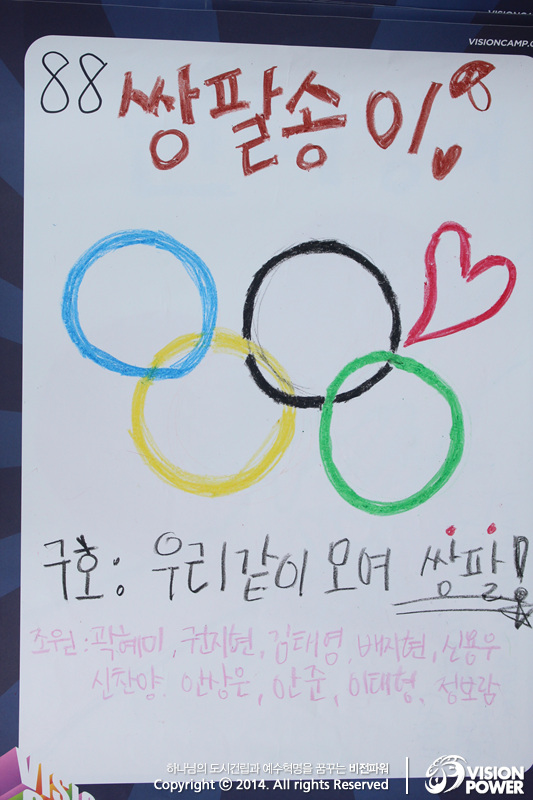 VISIONCAMP.
88 쌍팔송이
구호: 우리같이 모여 쌍팔!
조원: 곽혜미, 권지현, 김태영, 배지현, 신용우
신찬양, 안상은, 안준, 이태형, 정보람
하나님의 도시건립과 예수혁명을 꿈꾸는 비전파워
Copyright ⓒ 2014. All rights Reserved
VISION
POWER